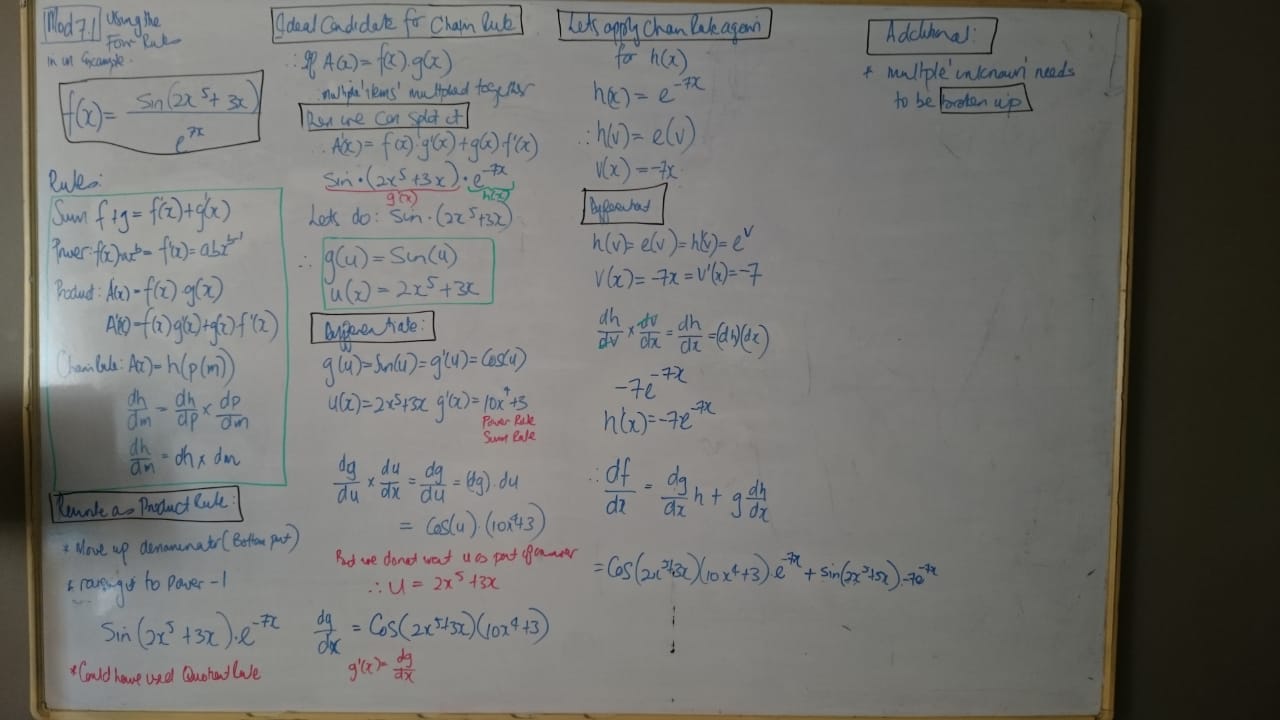 Mod 7.1
Using the
Four Rules
in an Example.
f(x) = Sin(2x⁵ + 3x) / e⁷ˣ
Rules:
Sum f+g = f'(x)+g'(x)
Power: f(x)=axᵇ = f'(x) = abxᵇ⁻¹
Product: A(x) = f(x) g(x)
A'(x) = f(x)g'(x)+g(x)f'(x)
Chain Rule: A(x) = h(p(m))
dh/dm = dh/dp × dp/dm
dh/dm = dh × dm
Rewrite as Product Rule:
* Move up denominator (Bottom part)
* raising it to Power -1
Sin(2x⁵ + 3x)·e⁻⁷ˣ
* Could have used Quotient Rule
Ideal Candidate for Chain Rule
∴ If A(x) = f(x).g(x)
multiple 'items' multiplied together
Then we can split it
∴ A'(x) = f(x) g'(x)+g(x) f'(x)
Sin·(2x⁵+3x)·e⁻⁷ˣ
g(x) h(x)
Lets do: Sin·(2x⁵+3x)
∴ g(u) = Sin(u)
u(x) = 2x⁵ + 3x
Differentiate:
g(u)=Sin(u)=g'(u)=Cos(u)
u(x)=2x⁵+3x g'(x)=10x⁴+3
Power Rule
Sum Rule
dg/du × du/dx = dg/du = (dg).du
= Cos(u).(10x⁴+3)
But we do not want u as part of answer
∴ u = 2x⁵ + 3x
dg/dx = Cos(2x⁵+3x)(10x⁴+3)
g'(x) = dg/dx
Lets apply Chain Rule again
for h(x)
h(x) = e⁻⁷ˣ
∴ h(v) = e(v)
v(x) = -7x
Differentiate
h(v)= e(v)=h'(v)=eᵛ
v(x) = -7x = v'(x) = -7
dh/dv × dv/dx = dh/dx = (dh)(dx)
-7e⁻⁷ˣ
h'(x) = -7e⁻⁷ˣ
∴ df/dx = dg/dx h + g dh/dx
= Cos(2x⁵+3x)(10x⁴+3).e⁻⁷ˣ + Sin(2x⁵+5x).-7e⁻⁷ˣ
Additional:
* multiple 'unknown' needs
to be broken up